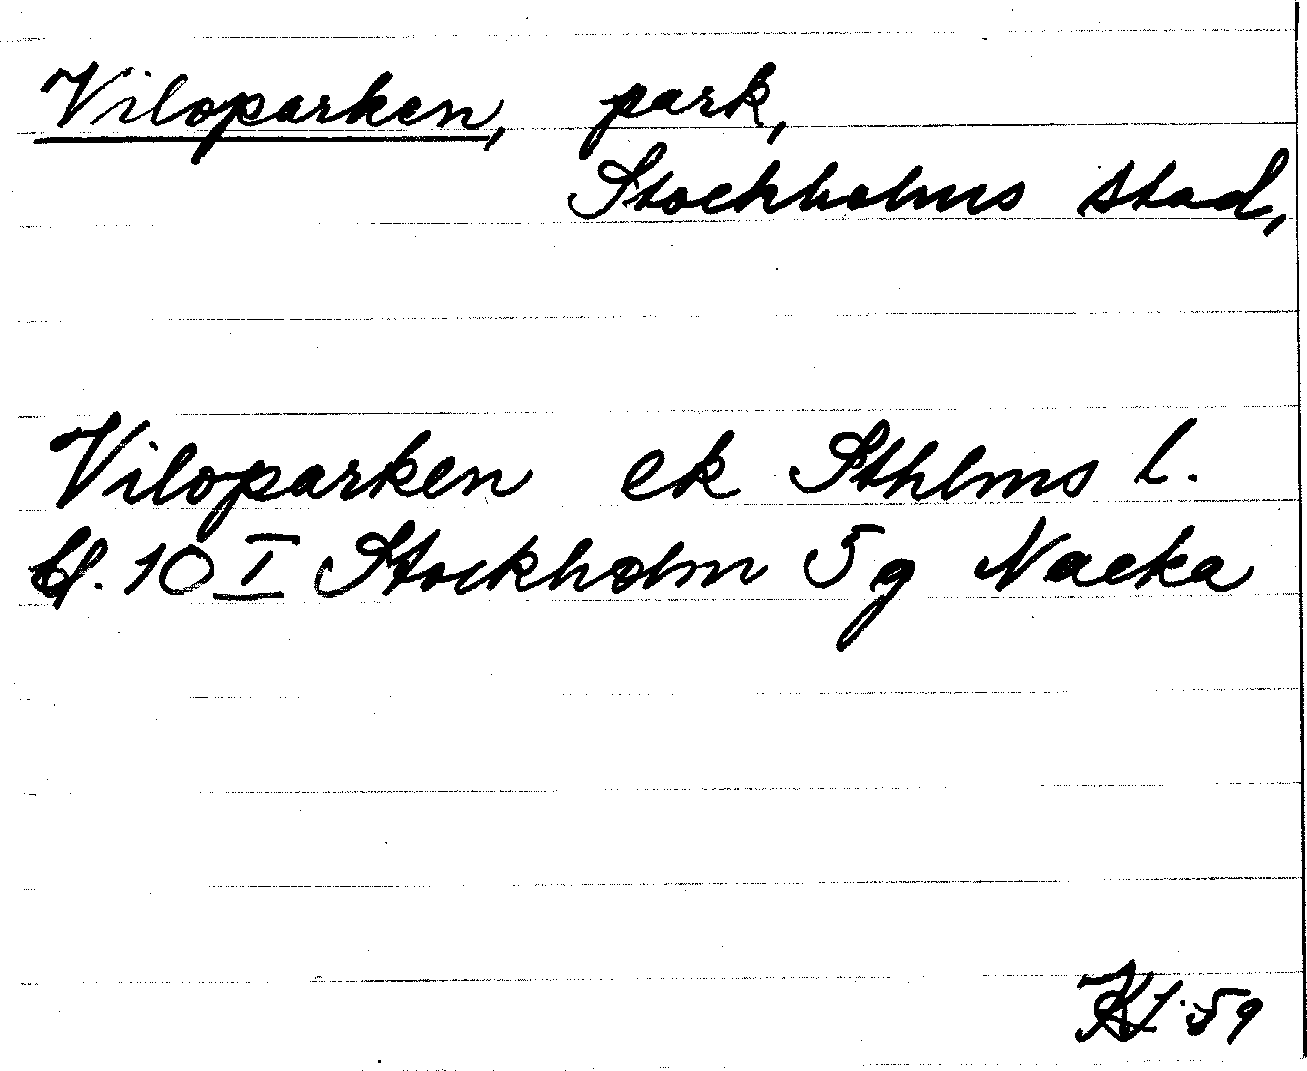 Viloparken, park,
Stockholms stad,
Viloparken ek Sthlms l.
bl. 10 I Stockholm 5g Nacka
59